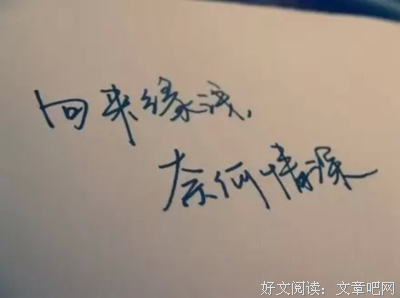 向来缘浅，
奈何情深
好文阅读：文章吧网